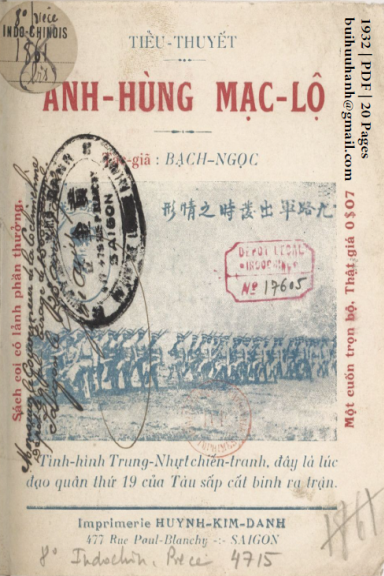 8º pièce
INDO-CHINOIS
1861
TIỂU-THUYẾT
ANH-HÙNG MẠC-LỘ
Tác-giã : BẠCH-NGỌC
Sách coi có lảnh phần thưởng.
Một cuốn trọn bộ. Thật giá 0$07
1932 | PDF | 20 Pages
buihauhanh@gmail.com
SAIGON
形情之時發出軍路九
DÉPÔT LÉGAL
INDOCHINE
Nº 17605
Tình-hình Trung-Nhựt chiến-tranh, đây là lúc
đạo quân thứ 19 của Tàu sắp cất binh ra trận.
Imprimerie HUYNH-KIM-DANH
477 Rue Paul-Blanchy -:- SAIGON
8º Indochin. Pièce 4715
1861